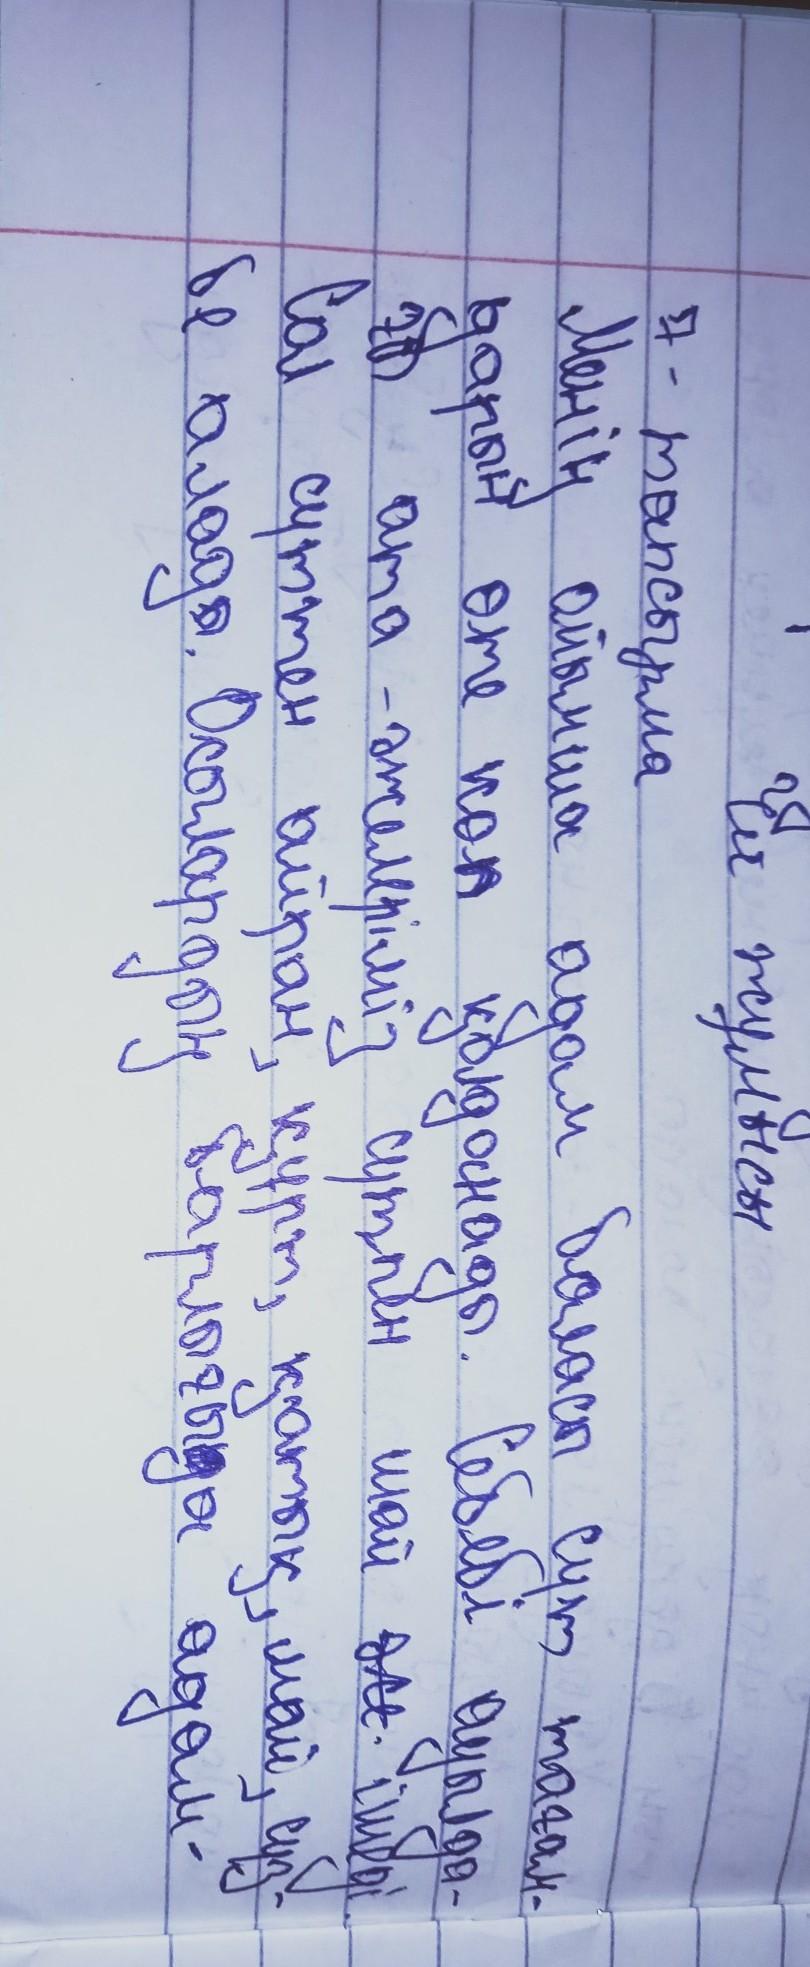 Үй жұмысы
7-тапсырма
Менің ойымша адам баласы сүт тағам-
дарын өте көп қолданады. Себебі ауылда-
ғы ата-әжелеріміз сүтпен шай ішеді.
Сол сүттен айран, құрт, қатық, май, сүз-
бе алады. Осылардың барлығыда адам-